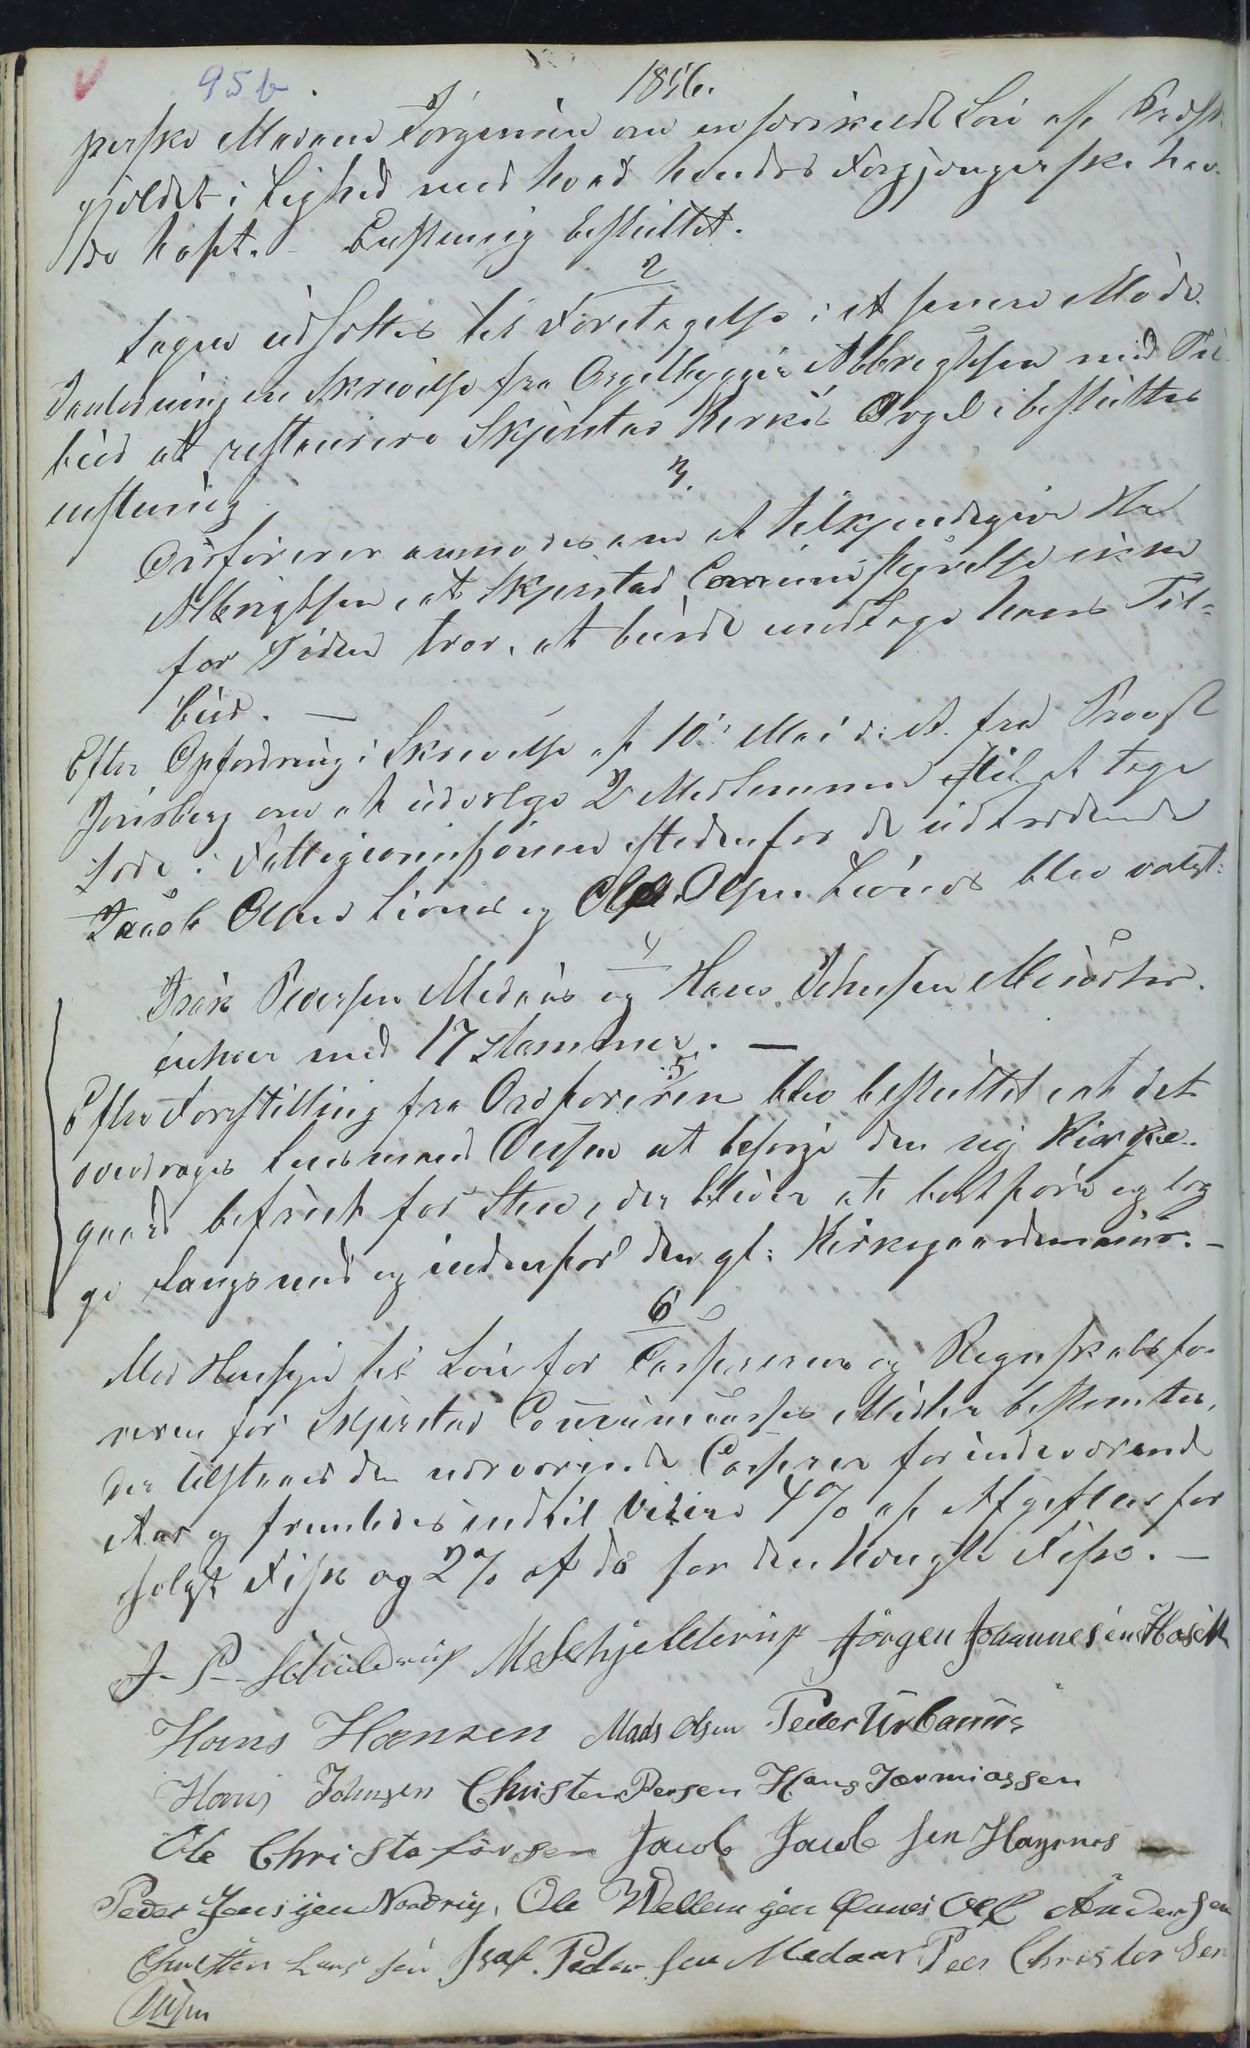 95b. 1856.
perske Madam Jörgensen om en særskildt Lön af Præste
gjeldet i Lighed med hvad hendes Forgjengerske hav
de haft. Enstemig besluttet.
2
Sagen udsettes til Foretagelse i et senere Möde.
I Anledning en Skrivelse fra Orgelbygger Albregtsen med Til
bud at restaurere Skjerstad Kirkes Orgel, besluttes
enstemig
3.
Ordförerer anmodes om at tilkjendegive Hr
Albrigtsen, at Skjerstad Communestyrelse ikke
for Tiden tror, at burde modtage hans Til-
bud. —
Efter Opfordring i Skrivelse af 10de Mai d: A. fra Provst
Jensberg om at udvælge 2de Medlemmer til at tage
Sæde i Fattigcomisjonen istedenfor de udtrædende
Jacob Olsen Leines og Ole Olsen Leines blev valgt:
4
Isak Pedersen Medaas og Hans Johnsen
enhver med 17 Stemmer. —
5
Efter Forestilling fra Ordföreren blev besluttet, at det
overdrages Lensmand Olsen at besörge den ny Kirke-
gaard befriet for Steen, der bliver at bortföre og læg
ge langs med og indenfor den gl: Kirkegaardsmuur. —
6
Med Hensyn til Lön for Casserer og Regnskabsfö
reren for Skjerstad Communecasses Midler bestemtes,
der tilstaaes den nuværende Casserer for indeværende
Aar og fremdeles indtil Videre 4% af Afgiften for
solgt Fisk og 2% af do for den kongle Fisk. —
J. P. Schjelderup M Schjelderup Jörgen Johannesen Hosæth
Hans Hansen Mads Olsen Peder Urbanus
Hans Johnsen Christen Persen Hans Jærmiassen
Ole Christoforsen Jacob Jacobsen Høgsnes
Peder Jensen Nordvig, Ole Wellemsen Olef Andersen
Christen Larsen Isak Pedersen Medaas Peer Christersen
Olsen